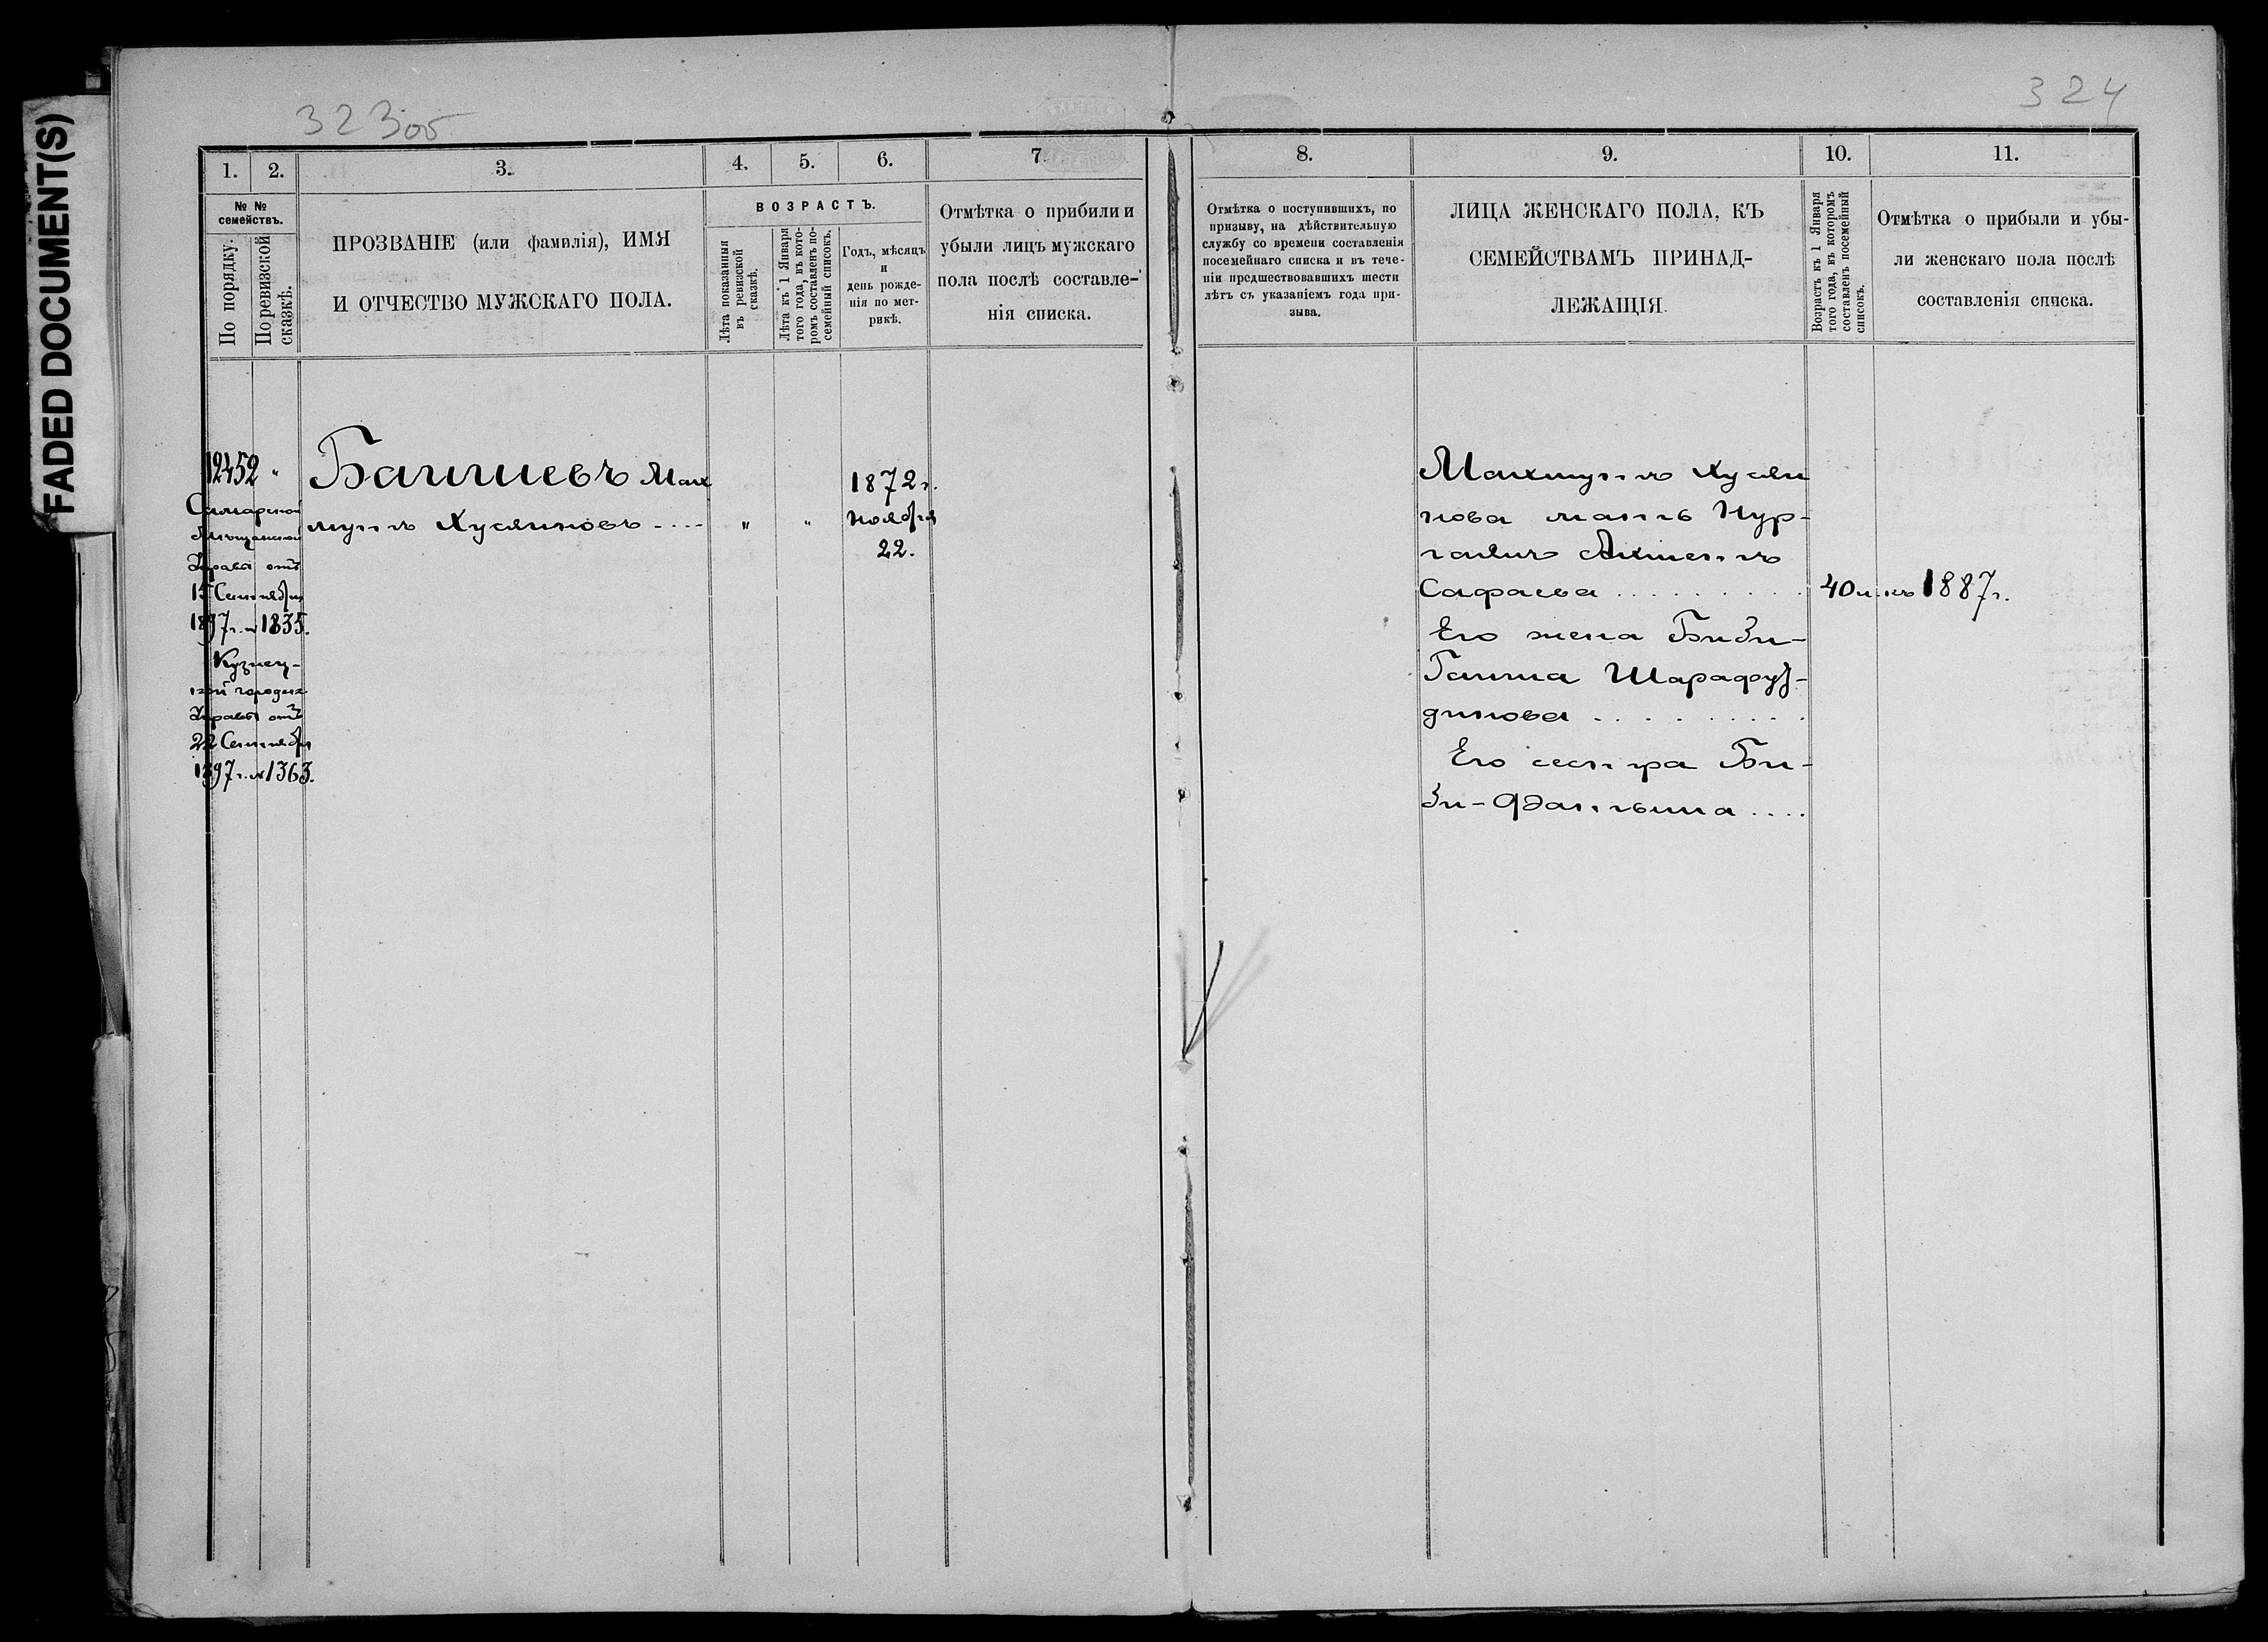 FADED DOCUMENT(S)
323об
324
1. 2. 3. 4. 5. 6. 7.
№ № семействъ.
По порядку.
По ревизской сказкѣ.
ПРОЗВАНІЕ (или фамилія), ИМЯ
И ОТЧЕСТВО МУЖСКАГО ПОЛА.
ВОЗРАСТЪ.
Лѣта показанныя
въ ревизской
сказкѣ.
Лѣта къ 1 Января
того года, въ кото-
ромъ составленъ по-
семейный списокъ.
Годъ, мѣсяцъ
и
день рожде-
нія по мет-
рикѣ.
Отмѣтка о прибили и
убыли лицъ мужскаго
пола послѣ составле-
нія списка.
12452 "
Самарской
Мѣщанской
Управы отъ
15 Сентября
1897г. № 1835.
Кузнец-
кой городск
Управы отъ
22 Сентября
1897г. № 1363.
Башиевъ Мах
мутъ Хусяиновъ ....
" "
1872г.
ноября
22.
8. 9. 10. 11.
Отмѣтка о поступившихъ, по
призыву, на дѣйствительную
службу со времени составленія
посемейнаго списка и въ тече-
ніи предшествовавшихъ шести
лѣтъ съ указаніемъ года при-
зыва.
ЛИЦА ЖЕНСКАГО ПОЛА, КЪ
СЕМЕЙСТВАМЪ ПРИНАД-
ЛЕЖАЩІЯ.
Возрастъ къ 1 Января
того года, въ которомъ
составленъ посемейный
списокъ.
Отмѣтка о прибыли и убы-
ли женскаго пола послѣ
составленія списка.
Махмутъ Хусяи
нова мать Нур-
Сафаева . . . . . . . . . 40 л. къ 1887г.
Его жена Биби-
Гайша Шарафут-
динова . . . . . . . . .
Его сестра Би-
би-Фатьима ....